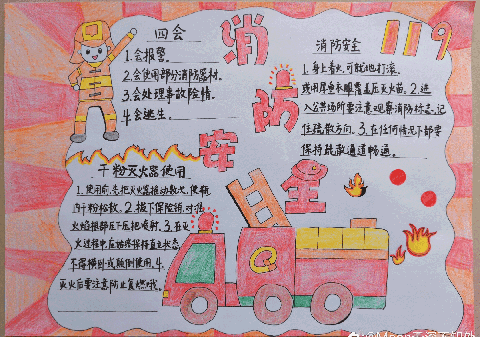 四会
1.会报警。
2.会使用部分消防器材。
3.会处理事故险情。
4.会逃生。
消防安全
119
消防安全
1.身上着火,可就地打滚,
或用厚重衣服覆盖压灭火苗。2.进
入公共场所要注意观察消防标志,记
住疏散方向。3.在任何情况下都要
保持疏散通道畅通。
干粉灭火器使用
1.使用前,先把灭火器摇动数次,使瓶
内干粉松散。2.拔下保险销,对准
火焰根部压下压把喷射。3.在灭
火过程中,应始终保持直立状态,
不得横卧或颠倒使用。4.
灭火后要注意防止复燃哦。